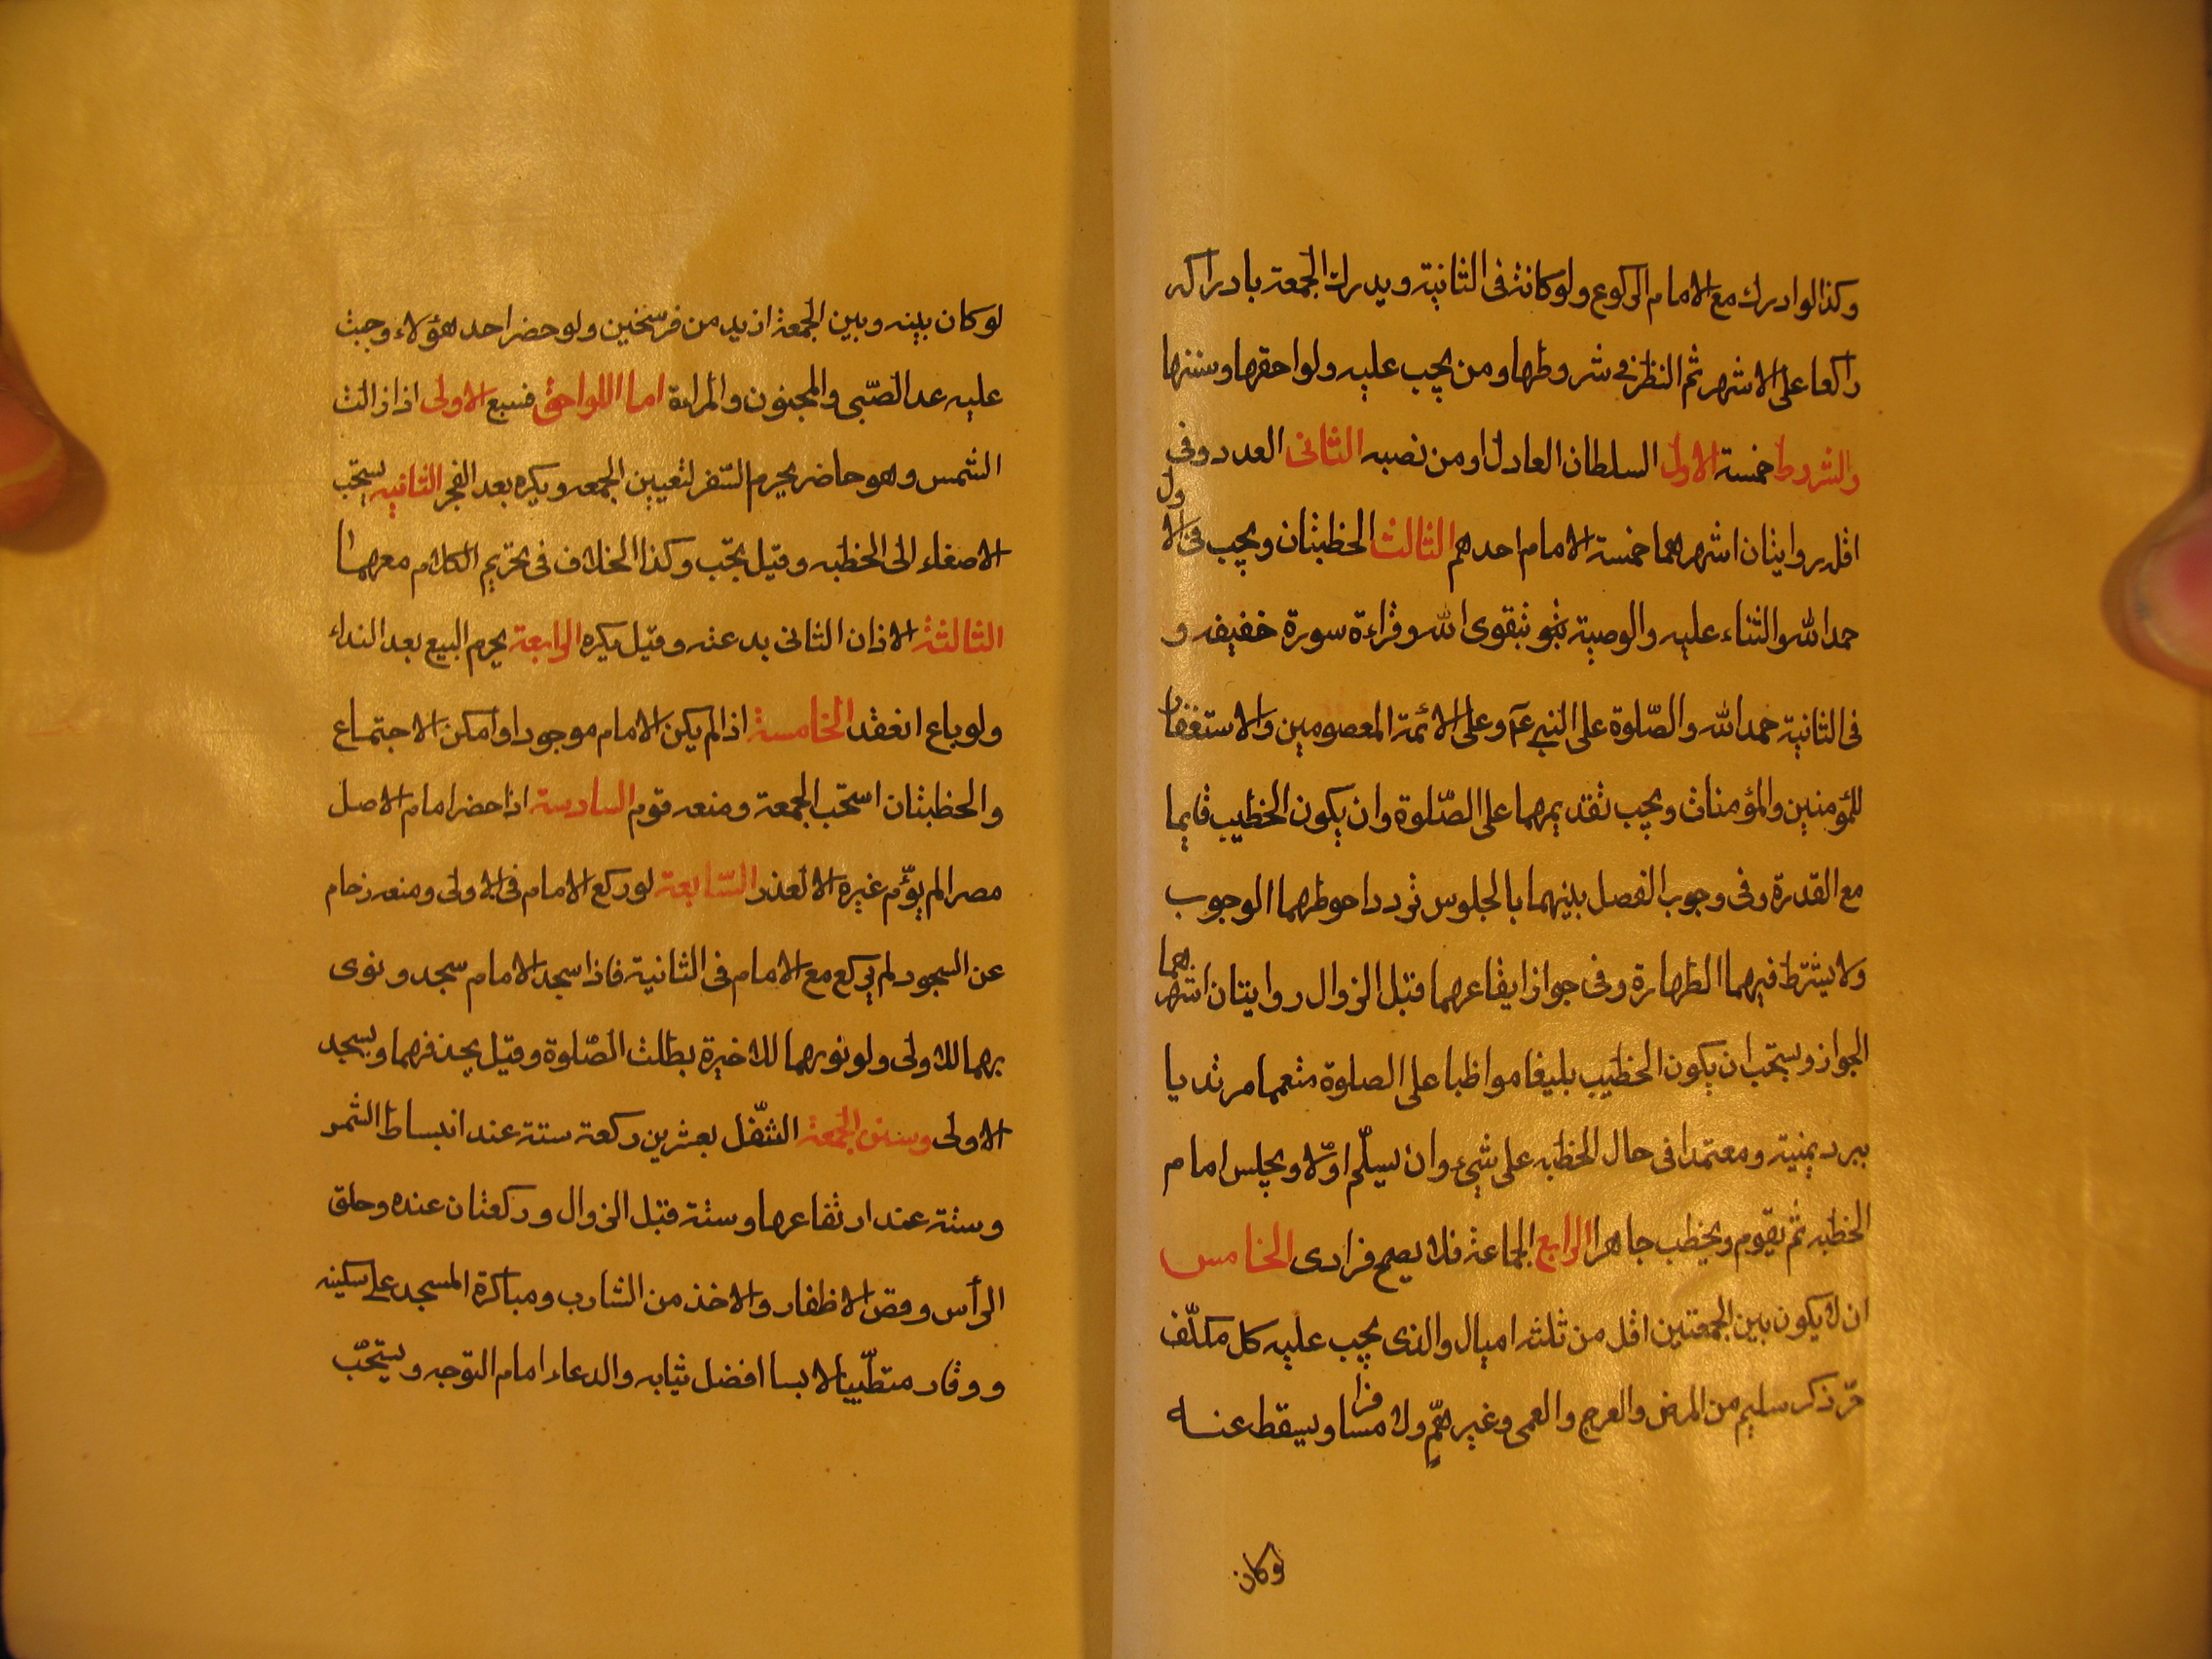 وكذا لو ادرك مع الامام الركوع ولو كانت فى الثانية ويدرك الجمعة بادراكه
راكعا على الاشهر ثم النظر فى شروطها ومن يجب عليه ولواحقها وسننها
والشروط خمسة الاول السلطان العادل او من نصبه الثانى العدد وفى
اقله روايتان اشهرهما خمسة الامام احدهم الثالث الخطبتان ويجب فى الاول
حمد الله والثناء عليه والوصية بتقوى الله وقراءة سورة خفيفه و
فى الثانية حمد الله والصّلوة على النبي عم وعلى الائمة المعصومين والاستغفار
للمؤمنين والمؤمنات ويجب تقديمهما على الصّلوة وان يكون الخطيب قايما
مع القدرة وفى وجوب الفصل بينهما بالجلوس تردد احوطهما الوجوب
ولا يشترط فيهما الطهارة وفى جواز ايقاعهما قبل الزوال روايتان اشهرهما
الجواز ويستحب ان يكون الخطيب بليغا مواظبا على الصلوة متعمما مرتديا
ببرد يمنية ومعتمدا فى حال الخطبه على شيء وان يسلّم اوّلا ويجلس امام
الخطبه ثم يقوم ويخطب جاهرا الرابع الجماعة فلا يصح فرادى الخامس
ان لا يكون بين الجمعتين اقل من ثلثه اميال والذى يجب عليه كل مكلّف
حرّ ذكر سليم من المرض والعرج والعمى وغير همّ ولا مسافرا ويسقط عنه
لو كان
لو كان بينه وبين الجمعة ازيد من فرسخين ولو حضر احد هؤلاء وجبت
عليه عدا الصّبى والمجنون والمراءة اما اللواحق فسبع الاولى اذا زالت
الشمس وهو حاضر يحرم السّفر لتعيين الجمعه ويكره بعد الفجر الثانيه يستحّب
الاصغاء الى الخطبه وقيل يجّب وكذا الخلاف فى تحريم الكلام معهما
الثالثة الاذان الثانى بدعته وقيل يكره الرابعة يحرم البيع بعد النداء
ولو باع انعقد الخامسة اذا لم يكن الامام موجودا وامكن الاجتماع
والخطبتان استحّب الجمعة ومنعه قوم السادسة اذا حضر امام الاصل
مصرا لم يؤّم غيره الا لعذر السّابعة لو ركع الامام فى الاولى ومنعه زحام
عن السجود لم يركع مع الامام فى الثانية فاذا سجد الامام سجد ونوى
بهما للاولى ولو نويهما للاخيرة بطلت الصّلوة وقيل يحذفهما ويسجد
الاولى وسنن الجمعة التنّفل بعشرين ركعة ستة عند انبساط الشمس
وستة عند ارتفاعها وستة قبل الزوال وركعتان عنده وحلق
الرأس وقص الاظفار والاخذ من الشارب ومباكرة المسجد على سكينه
ووقار متطّيبا لابسا افضل ثيابه والدعاء امام التوجه ويستحّب